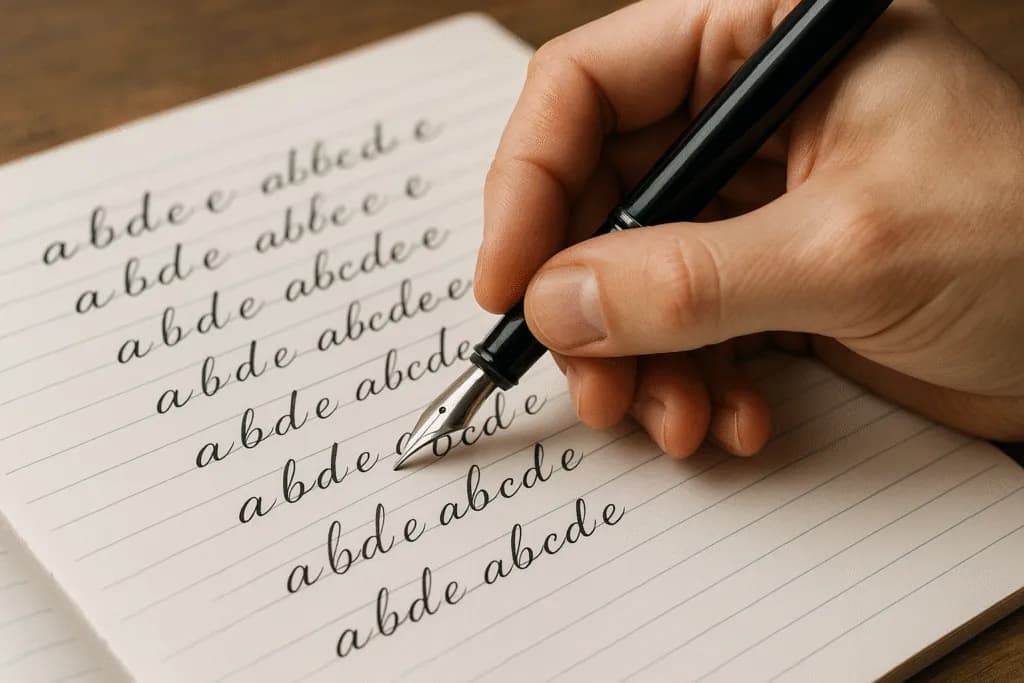 a b d e e abbcd e
a b d e abbc e e
a b d e abcde e
a b d e abcde e
a b d e abcde
a b d e cd e
a b d e abcde
a b d e abcde